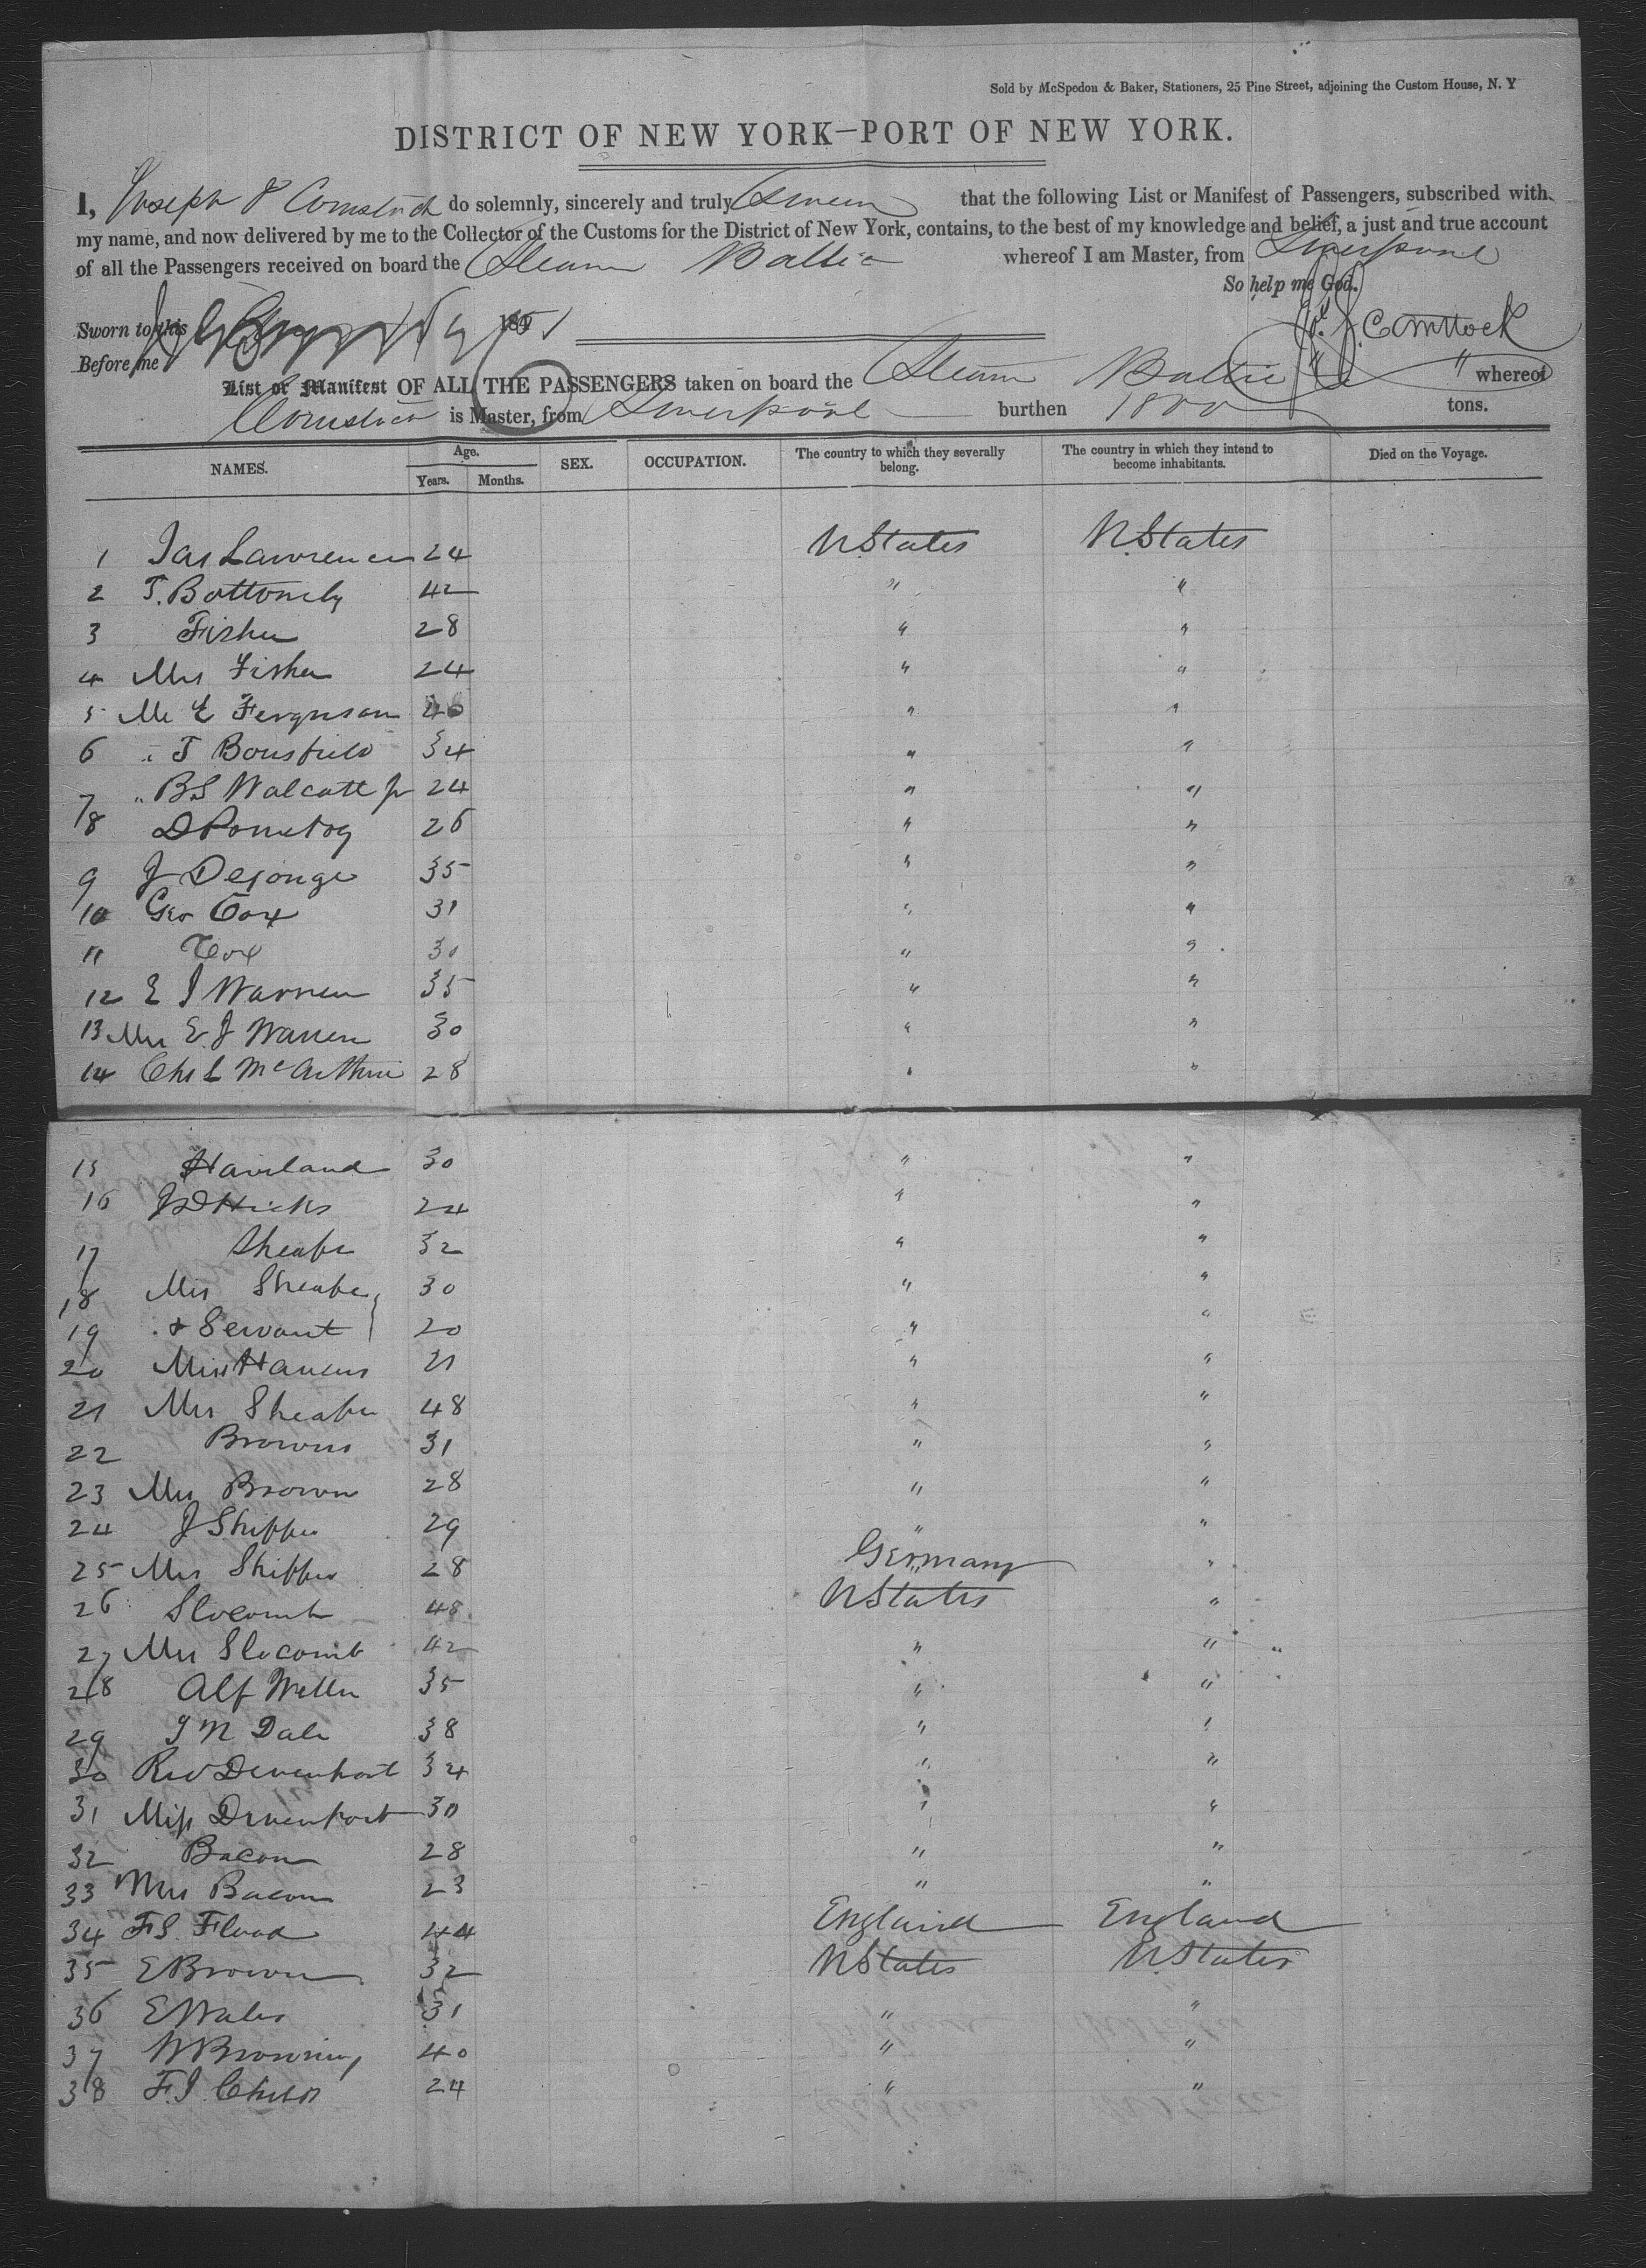 Sold by McSpedon & Baker, Stationers, 25 Pine Street, adjoining the Custom House, N. Y
DISTRICT OF NEW YORK—PORT OF NEW YORK.
I, Joseph J Comstock do solemnly, sincerely and truly Swear that the following List or Manifest of Passengers, subscribed with
my name, and now delivered by me to the Collector of the Customs for the District of New York, contains, to the best of my knowledge and belief, a just and true account
of all the Passengers received on board the Steam Baltic whereof I am Master, from Liverpool
So help me God.
Sworn to this 1851
Jos. J. Comstock
Before me
List or Manifest OF ALL THE PASSENGERS taken on board the Steam " Baltic " whereof
Comstock is Master, from Liverpool burthen 1800 tons.
NAMES. Age. Years. Months. SEX. OCCUPATION. The country to which they severally belong. The country in which they intend to become inhabitants. Died on the Voyage.
1 Jas Lawrence 24 U States U. States
2 T. Bottomly 42 " "
3 Fisher 28 " "
4 Mrs Fisher 24 " "
5 Mr E Ferguson " "
6 " T Bousfield 34 " "
7 " B S Walcott Jr 24 " "
8 D 26 " "
9 J Dejonge 35 " "
10 Geo Cox 31 " "
11 Cox 30 " "
12 E J Warren 35 " "
13 Mrs E. J Warren 30 " "
14 Chs L McArthur 28 " "
15 Haviland 30 " "
16 J D Hicks 24 " "
17 Sheafe 32 " "
18 Mrs Sheafe 30 " "
19 & Servant 20 " "
20 Miss Havens 21 " "
21 Mrs Sheafe 48 " "
22 Browns 31 " "
23 Mrs Brown 28 " "
24 J Shipper 29 " "
25 Mrs Shipper 28 Germany "
26 Slocomb 48 U States "
27 Mrs Slocomb 42 " "
28 Alf Weller 35 " "
29 T N Dale 38 " "
30 Rev Devenport 34 " "
31 Miss Devenport 30 " "
32 Bacon 28 " "
33 Mrs Bacon 23 " "
34 F S. Flood 44 England England
35 E Brown 32 U States U. States
36 E Wales 31 " "
37 W Browning 40 " "
38 F. J. Childs 24 " "